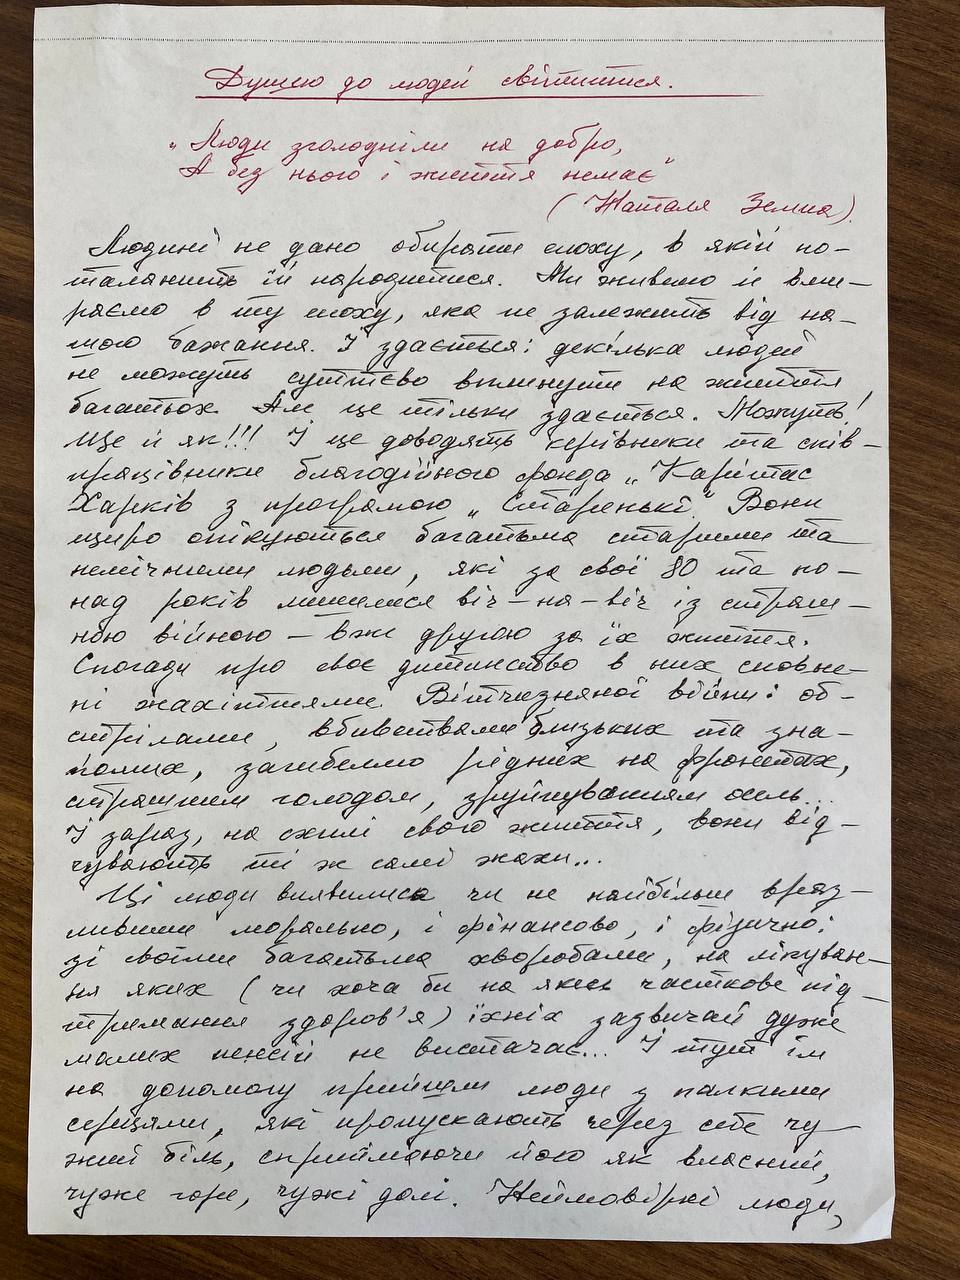 Душею до людей світитися.
„Люди зголодніли на добро,
А без нього і життя немає"
(Наталя Земна).
Людині не дано обирати епоху, в якій по-
таланить їй народитися. Ми живемо й вми-
раємо в ту епоху, яка не залежить від на-
шого бажання. І здається: декілька людей
не можуть суттєво вплинути на життя
багатьох. Але це тільки здається. Можуть!
Ще й як!!! І це доводять керівники та спів-
працівники благодійного фонда „Карітас
Харків з програмою „Старенькі". Вони
щиро опікуються багатьма старими та
немічними людьми, які за свої 80 та по-
над років лишилися віч-на-віч із страш-
ною війною – вже другою за їх життя.
Спогади про своє дитинство в них сповне-
ні жахіттями Вітчизняної війни: об-
стрілами, вбивствами близьких та зна-
йомих, загибеллю рідних на фронтах,
страшним голодом, зруйнуванням осель...
І зараз, на схилі свого життя, вони від-
чувають ті ж самі жахи...
Ці люди виявились чи не найбільш враз-
ливими морально, і фінансово, і фізично:
зі своїми багатьма хворобами, на лікуван-
ня яких (чи хоча би на якесь часткове під-
тримання здоров'я) їхніх зазвичай дуже
малих пенсій не вистачає... І тут їм
на допомогу прийшли люди з палкими
серцями, які пропускають через себе чу-
жий біль, сприймаючи його як власний,
чуже горе, чужі долі. Неймовірні люди,